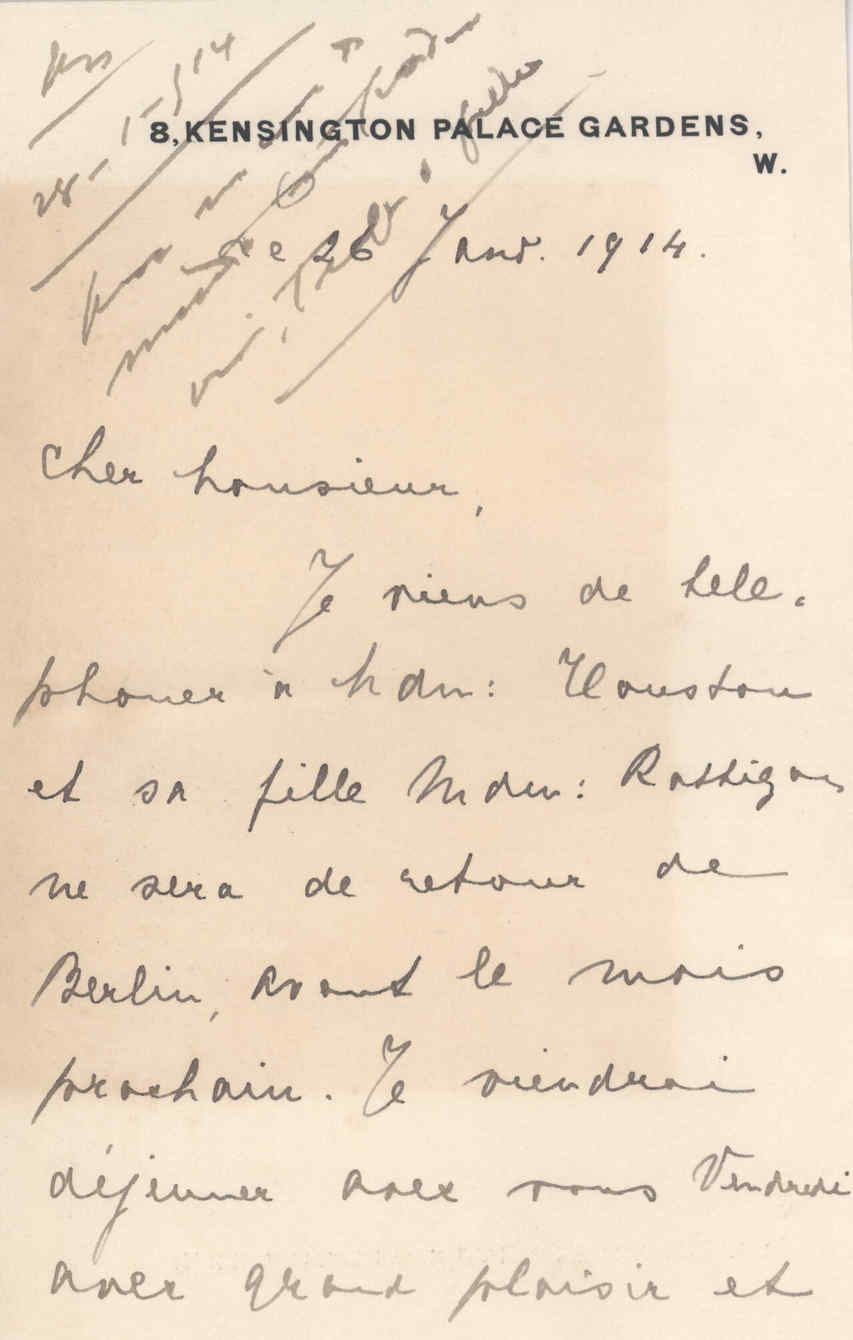 28-1-14
8, KENSINGTON PALACE GARDENS,
W.
le 26 Janv. 1914.
Cher Monsieur,
Je viens de tele-
phoner à Mdm: Houston
et sa fille Mdm: Rattigan
ne sera de retour de
Berlin, avant le mois
prochain. Je viendrai
déjeuner avec vous Vendredi
avec grand plaisir et